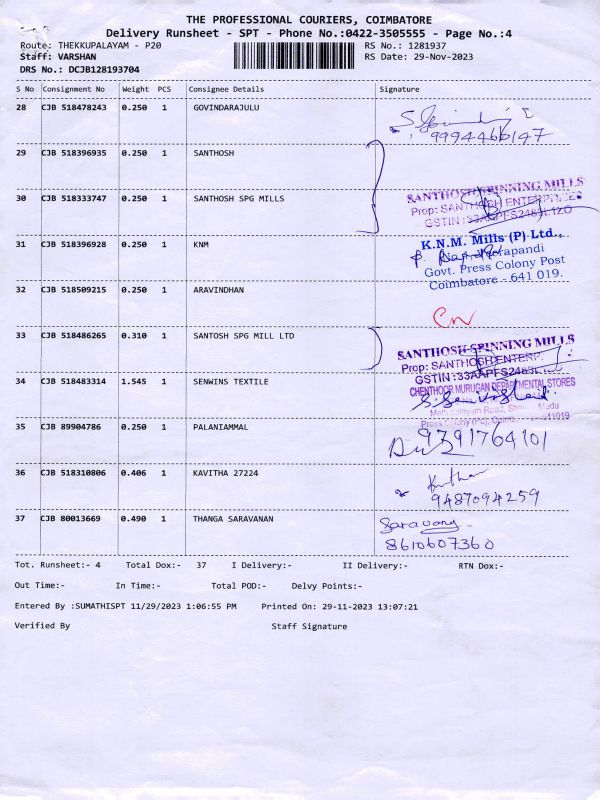 THE PROFESSIONAL COURIERS, COIMBATORE
Delivery Runsheet - SPT - Phone No.:0422-3505555 - Page No.:4
Route: THEKKUPALAYAM - P20 RS No.: 1281937
Staff: VARSHAN RS Date: 29-Nov-2023
DRS No.: DCJB128193704
S No Consignment No Weight PCS Consignee Details Signature
28 CJB 518478243 0.250 1 GOVINDARAJULU
9994466147
29 CJB 518396935 0.250 1 SANTHOSH
SANTHOSH SPINNING MILLS
30 CJB 518333747 0.250 1 SANTHOSH SPG MILLS
Prop: SANTHOSH ENTERPRISES
31 CJB 518396928 0.250 1 KNM
K.N.M. Mills (P) Ltd.,
Govt. Press Colony Post
Coimbatore - 641 019.
32 CJB 518509215 0.250 1 ARAVINDHAN
CN
33 CJB 518486265 0.310 1 SANTOSH SPG MILL LTD
SANTHOSH SPINNING MILLS
Prop: SANTHOSH ENTERP
34 CJB 518483314 1.545 1 SENWINS TEXTILE
CHENTHOOR MURUGAN DEPARTMENTAL STORES
35 CJB 89904786 0.250 1 PALANIAMMAL
9791764101
36 CJB 518310806 0.406 1 KAVITHA 27224
9487094259
37 CJB 80013669 0.490 1 THANGA SARAVANAN
Saravang
8610607360
Tot. Runsheet:- 4 Total Dox:- 37 I Delivery:- II Delivery:- RTN Dox:-
Out Time:- In Time:- Total POD:- Delvy Points:-
Entered By :SUMATHISPT 11/29/2023 1:06:55 PM Printed On: 29-11-2023 13:07:21
Verified By Staff Signature